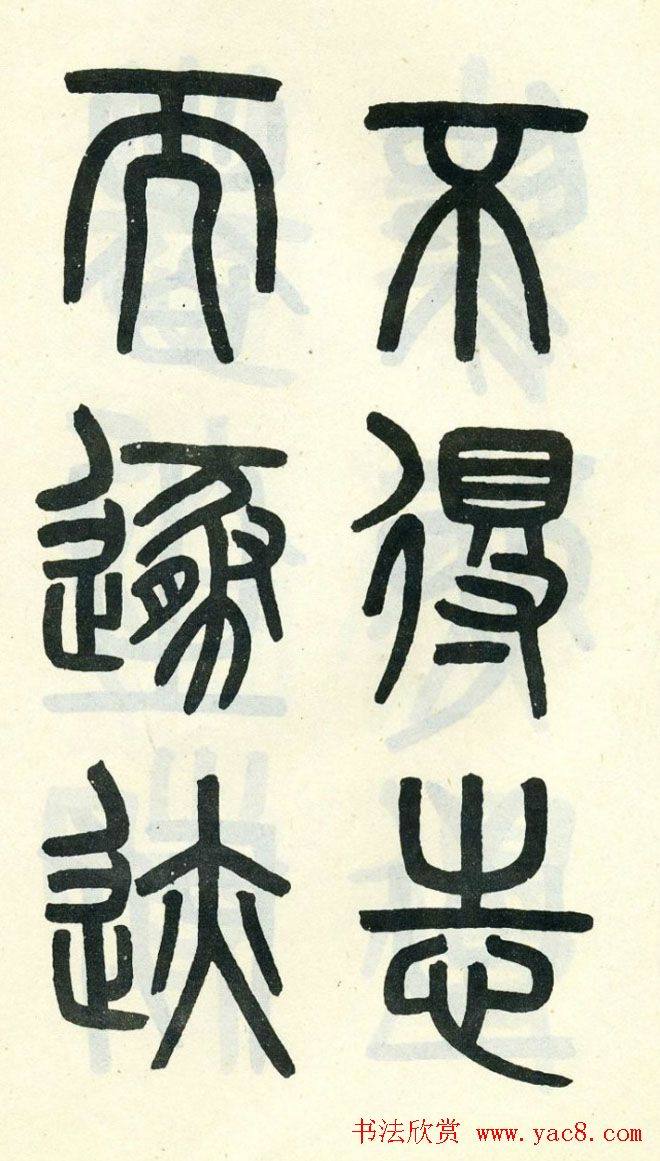 不得志
而遯迹
书法欣赏 www.yac8.com